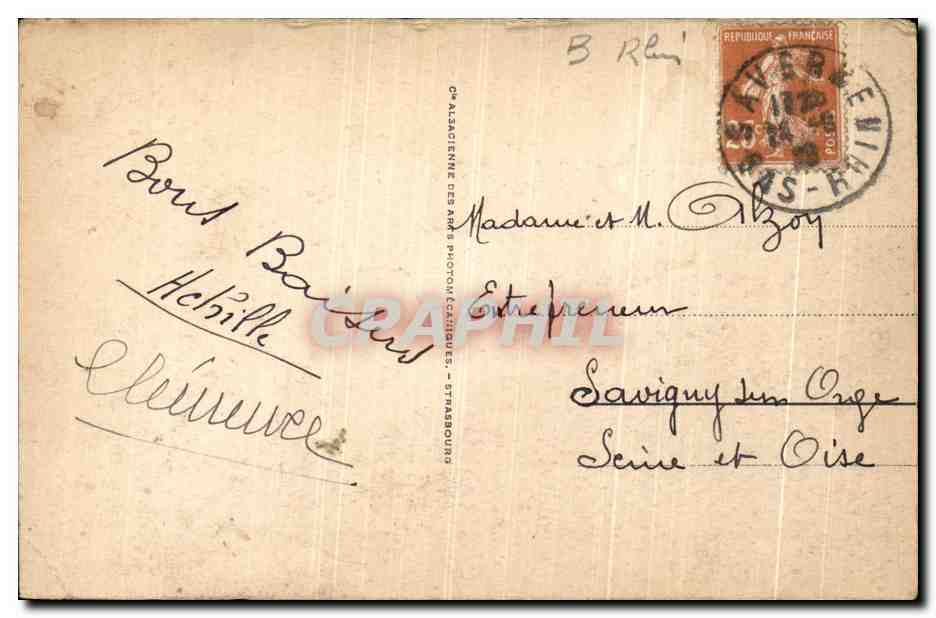 B Rhin
REPUBLIQUE FRANÇAISE
25c
POSTES
SAVERNE
BAS-RHIN
Cie ALSACIENNE DES ARTS PHOTOMÉCANIQUES. - STRASBOURG
Bons Baisers
Achille
Clémence
Madame et M. Alzoy
Entrepreneur
Savigny sur Orge
Seine et Oise
CRAPHIL